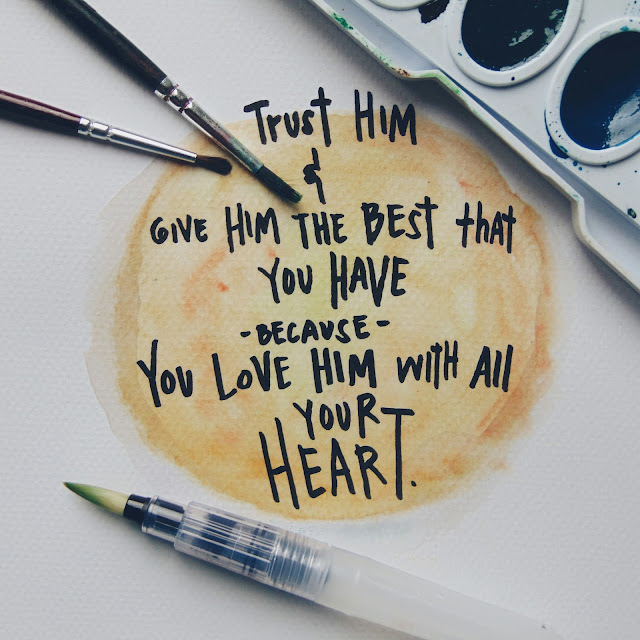 Trust HIM
&
GIVE HIM THE BEST that
YOU HAVE
-BECAUSE-
YOU LOVE HIM WITH All
YOUR
HEART.